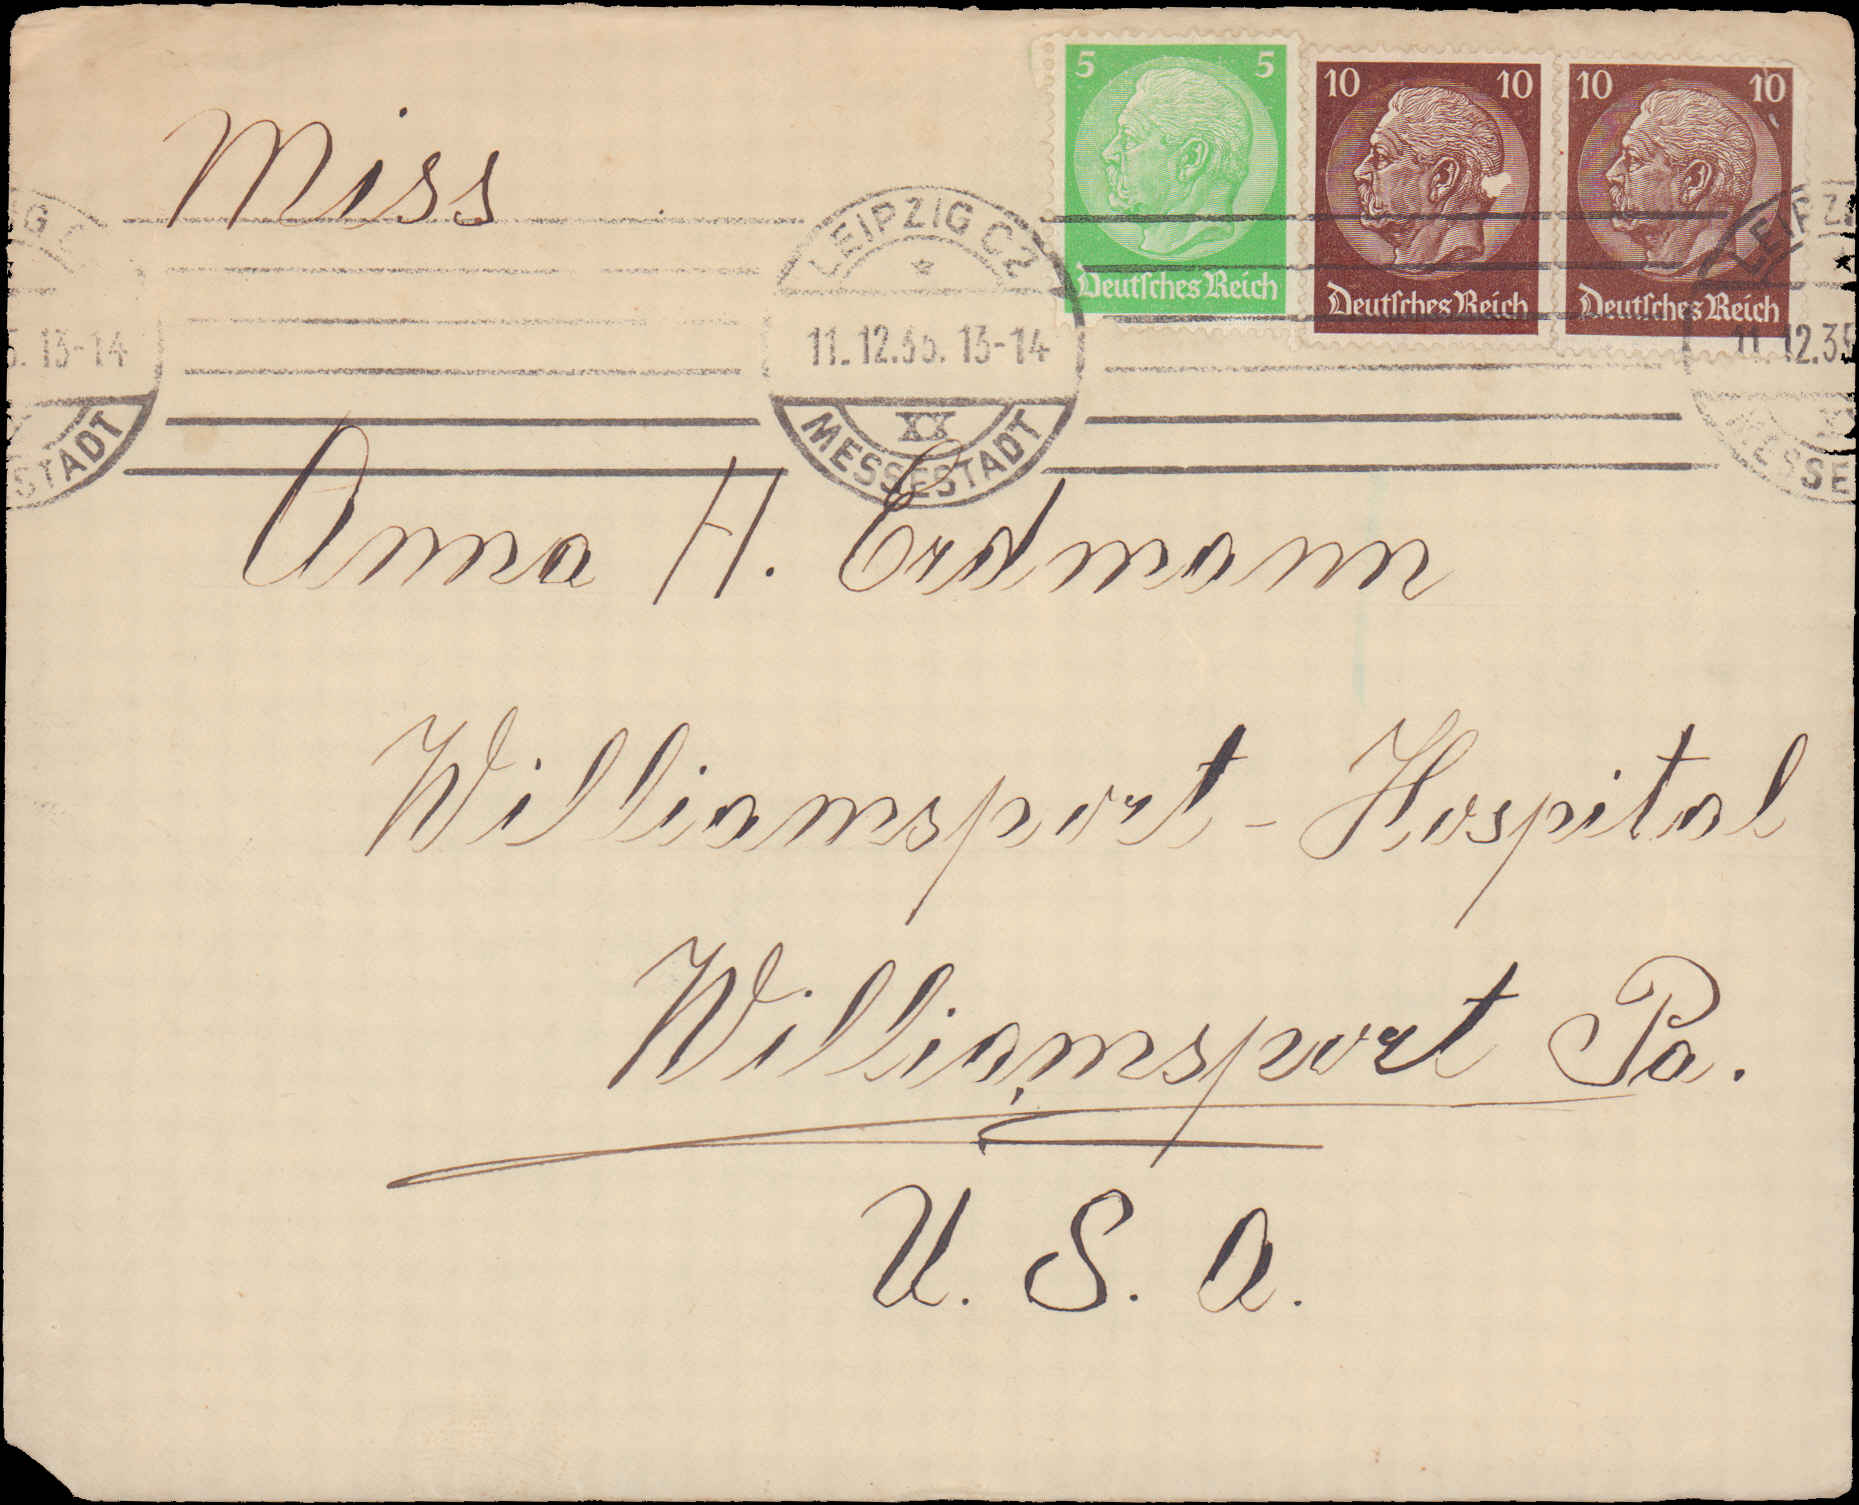 5 5
Deutsches Reich
10 10
Deutsches Reich
10 10
Deutsches Reich
Miss
LEIPZIG C2
11.12.35. 13-14
XX
MESSESTADT
IG C
5. 13-14
STADT
LEIPZI
11.12.35
MESSE
Anna H. Erdmann
Williamsport - Hospital
Williamsport Pa.
U. S. A.